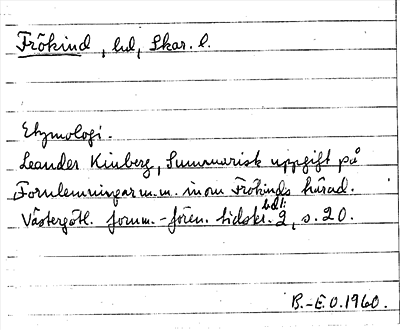 Frökind, hd, Skar. l.
Etymologi.
Leander Kinberg, Summarisk uppgift på
Fornlemningar m.m. inom Frökinds härad.
Västergötl. fornm.-fören. tidskr. bd1: 2, s. 20.
B.-E.O. 1960.